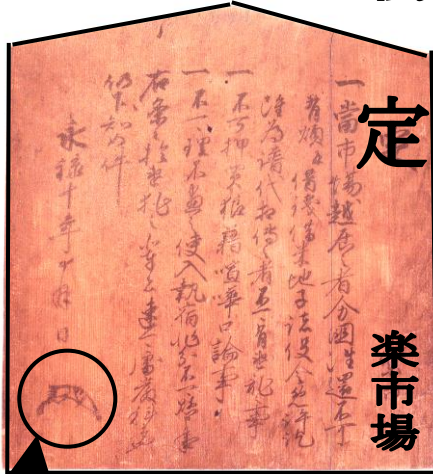 定 楽市場
一當市場越居之者分國往還不可
有煩并借銭借米地子諸役令免許訖
雖為譜代相傳之者不可有違乱事
一不可押買狼藉喧嘩口論事
一不可理不尽之使入執宿非分不可懸申事
右条々於違犯之輩者速可處厳科者也
仍下知如件
永禄十年十月日